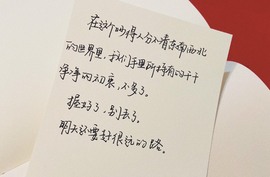 在这个吵得人分不清东南西北
的世界里，我们手里所持有的干干
净净的初衷，不多了。
握好了，别丢了。
明天还要赶很远的路。